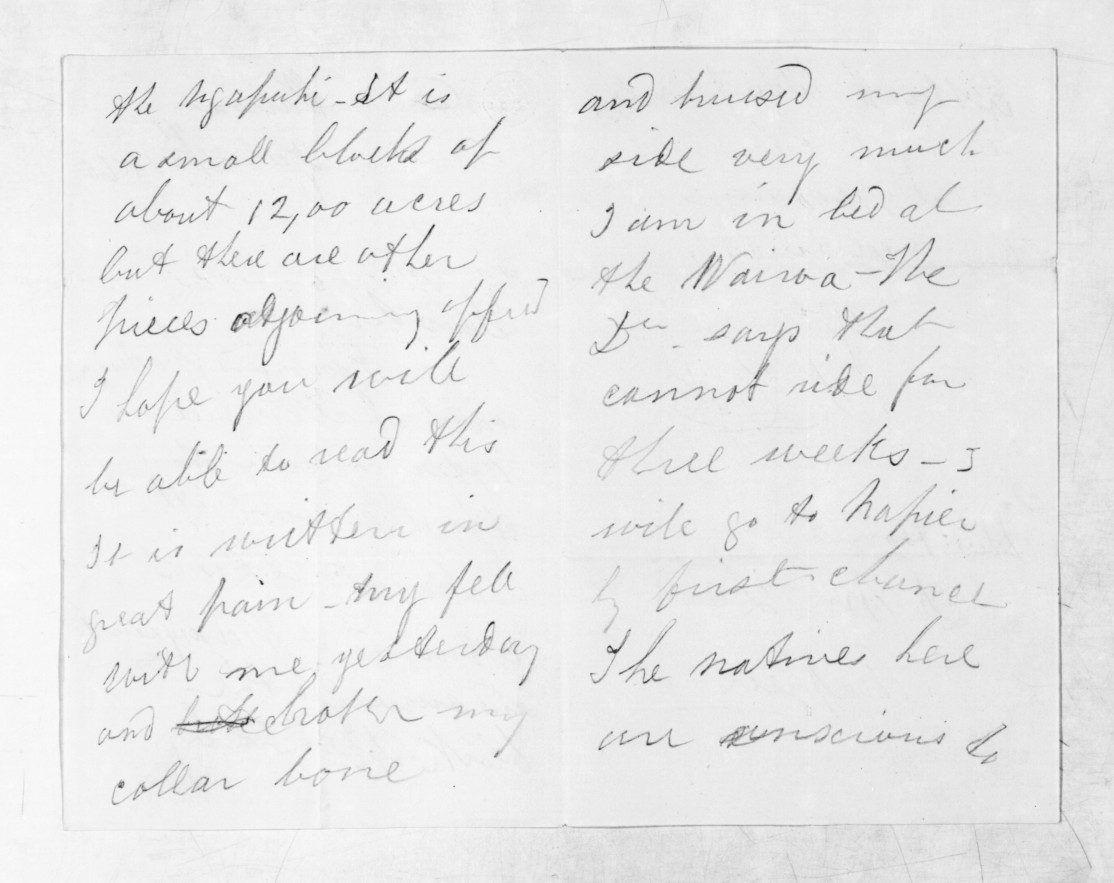 the Ngapuhi - It is
a small block of
about 12,00 acres
but there are other
pieces adjoining offered
I hope you will
be able to read this
It is written in
great pain - my fell
with me yesterday
and broken my
collar bone
and bruised my
side very much
I am in bed at
the Wairoa - The
Dr. says that
cannot ride for
three weeks - I
will go to Napier
by first chance
The natives here
are anxious to